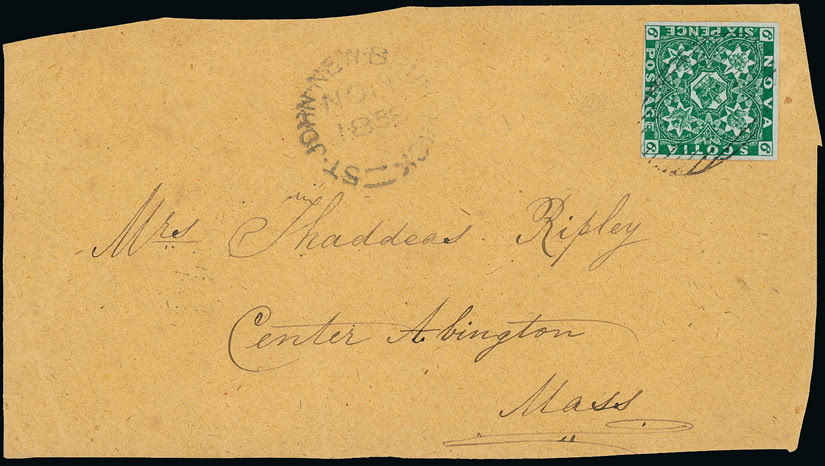 ST. JOHN NEW-BRUNSWICK
NO
185
SIX PENCE
NOVA
SCOTIA
POSTAGE
6
6
6
6
Mrs Thaddeas Ripley
Center Abington
Mass